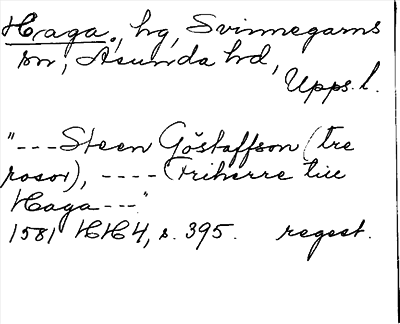 Haga, hg, Svinnegarns
sn, Åsunda hd,
Upps. l.
"---Steen Göstaffson (tre
rosor), ---- Friherre till
Haga---"
1581 HH4, s. 395. regest.